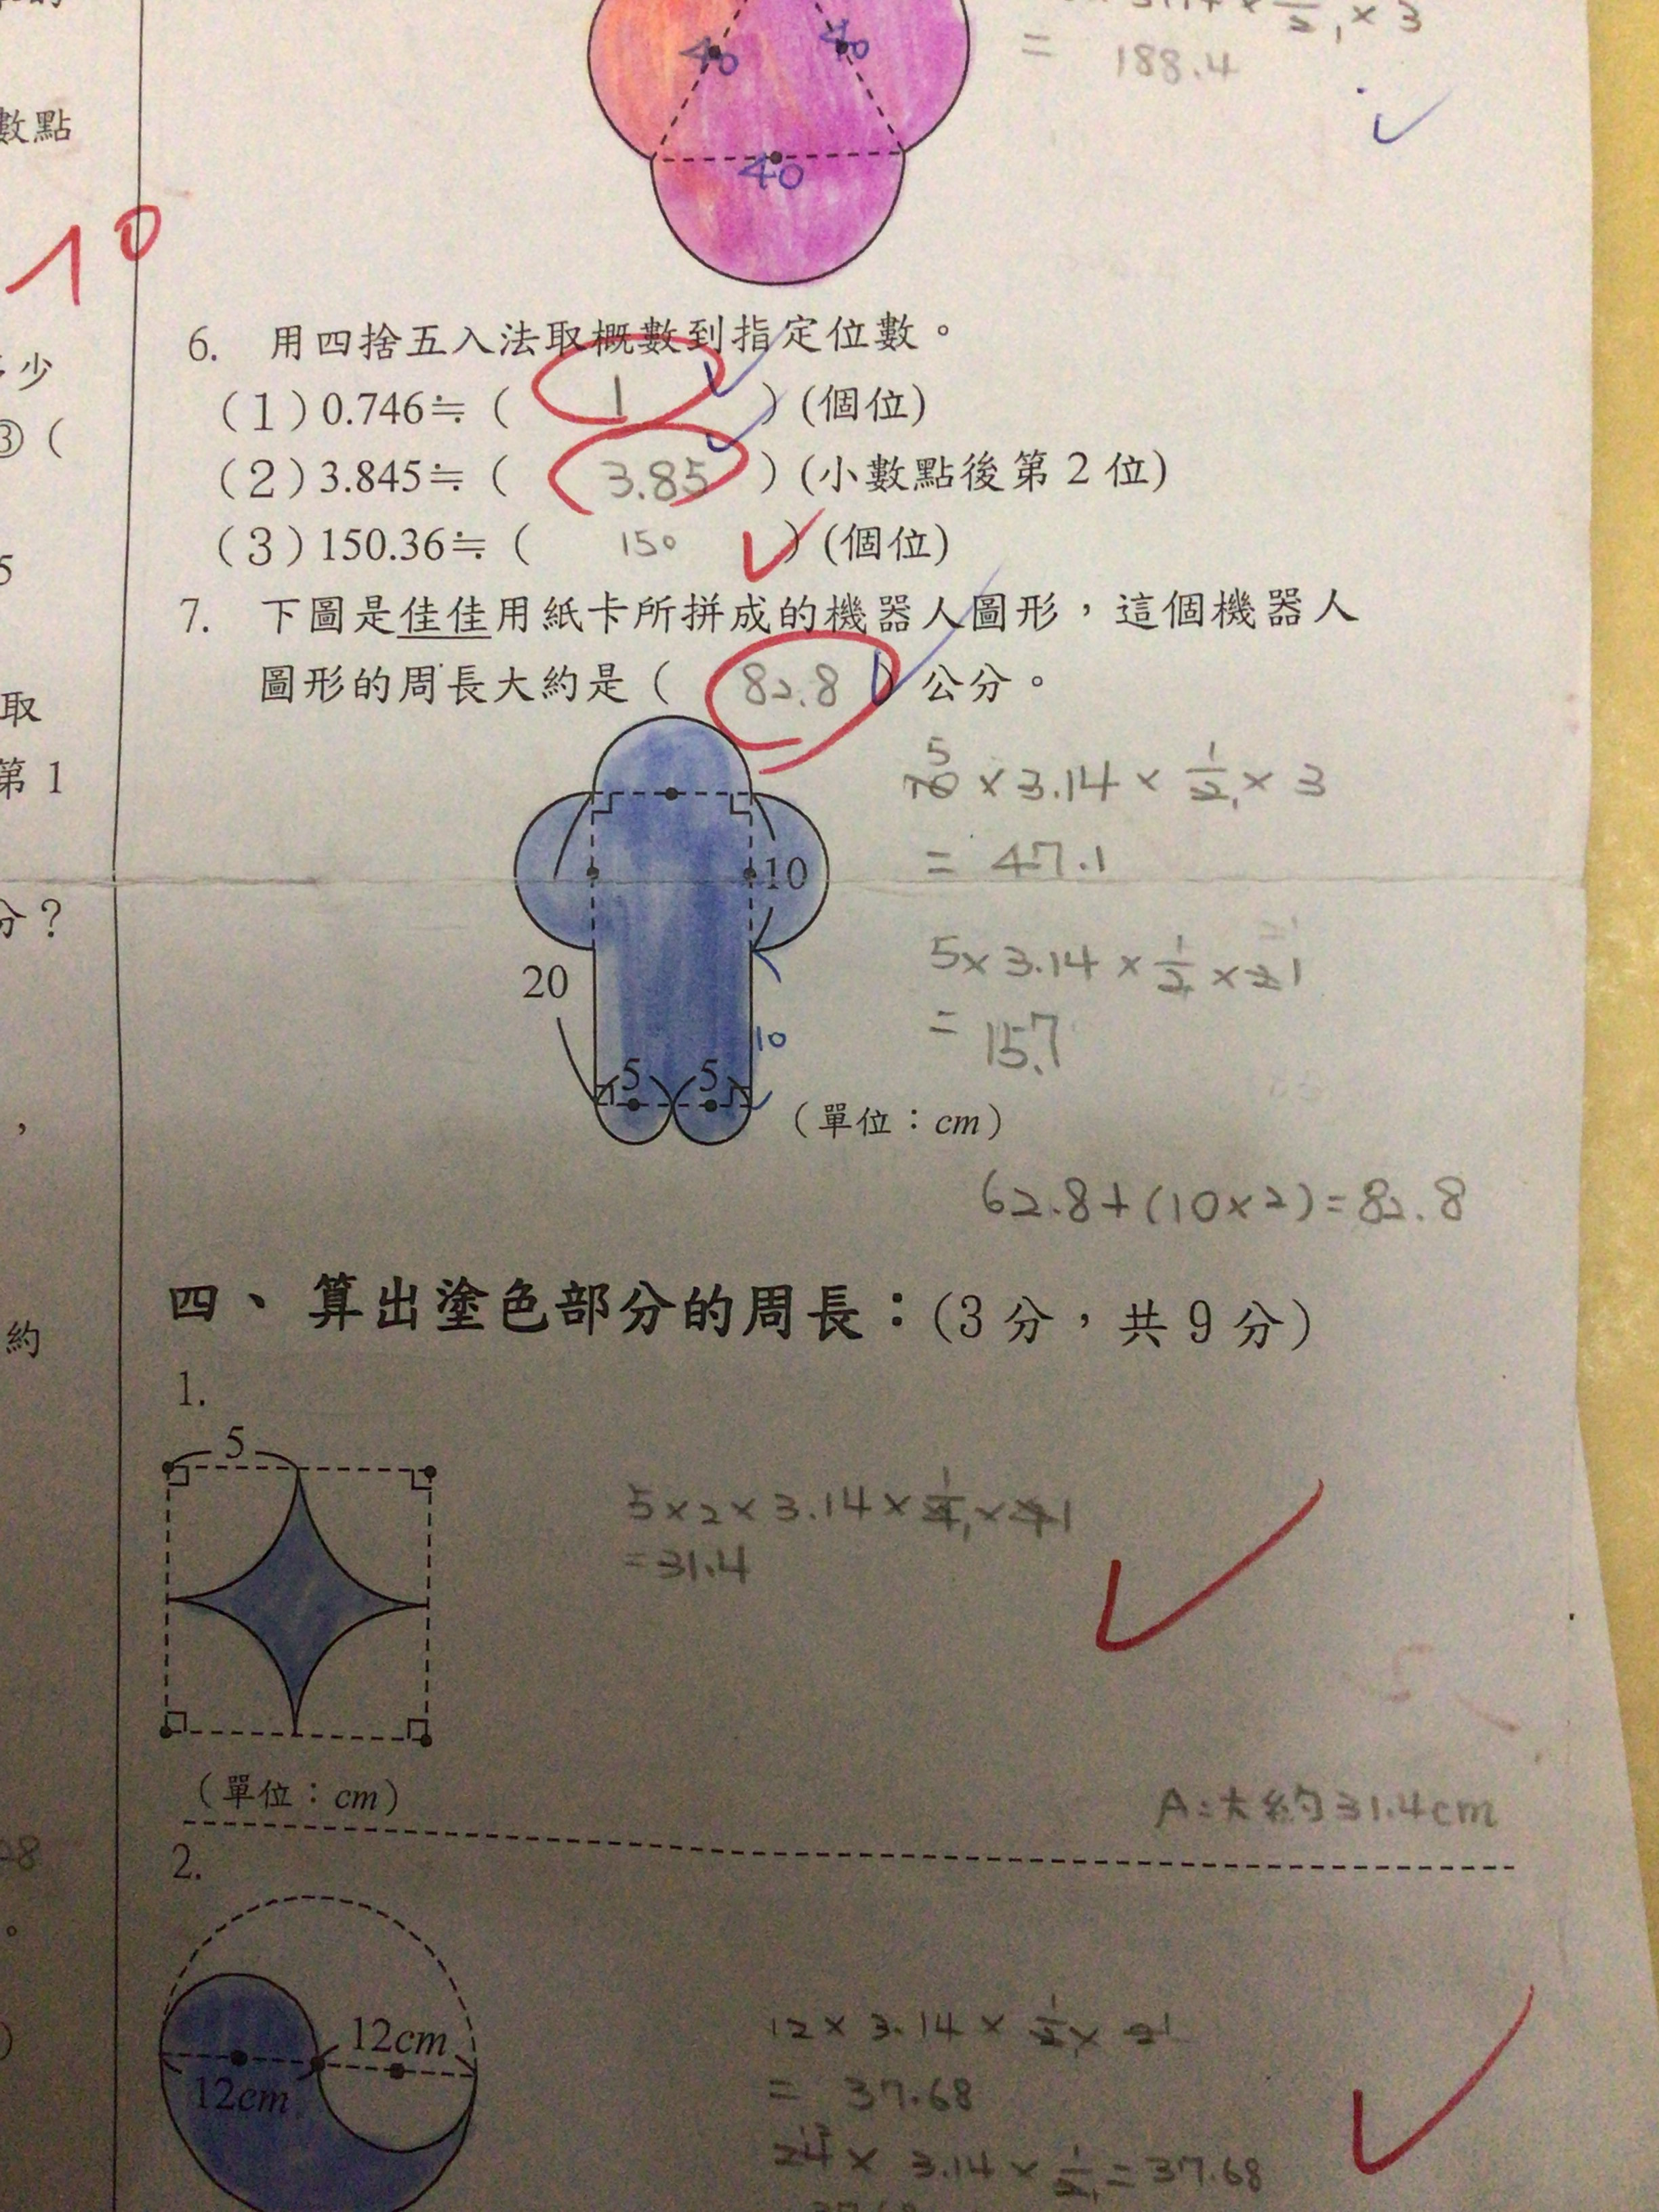 數點
10
少
③（
5
取
第 1
分？
，
約
。
40
40
40
3.14 × 1/2 × 3
= 188.4
6. 用四捨五入法取概數到指定位數。
（1）0.746≒（ 1 ）(個位)
（2）3.845≒（ 3.85 ）(小數點後第 2 位)
（3）150.36≒（ 150 ）(個位)
7. 下圖是佳佳用紙卡所拼成的機器人圖形，這個機器人
圖形的周長大約是（ 82.8 ）公分。
10
20
10
5 5
（單位：cm）
5
10 × 3.14 × 1/2 × 3
= 47.1
5 × 3.14 × 1/2 × 2 1
= 15.7
62.8+(10×2)=82.8
四、 算出塗色部分的周長：(3 分，共 9 分)
1.
5
5×2×3.14×1/4×4 1
=31.4
（單位：cm）
A:大約31.4cm
2.
12cm
12cm
12 × 3.14 × 1/2 × 2 1
= 37.68
24 × 3.14 × 1/2 = 37.68